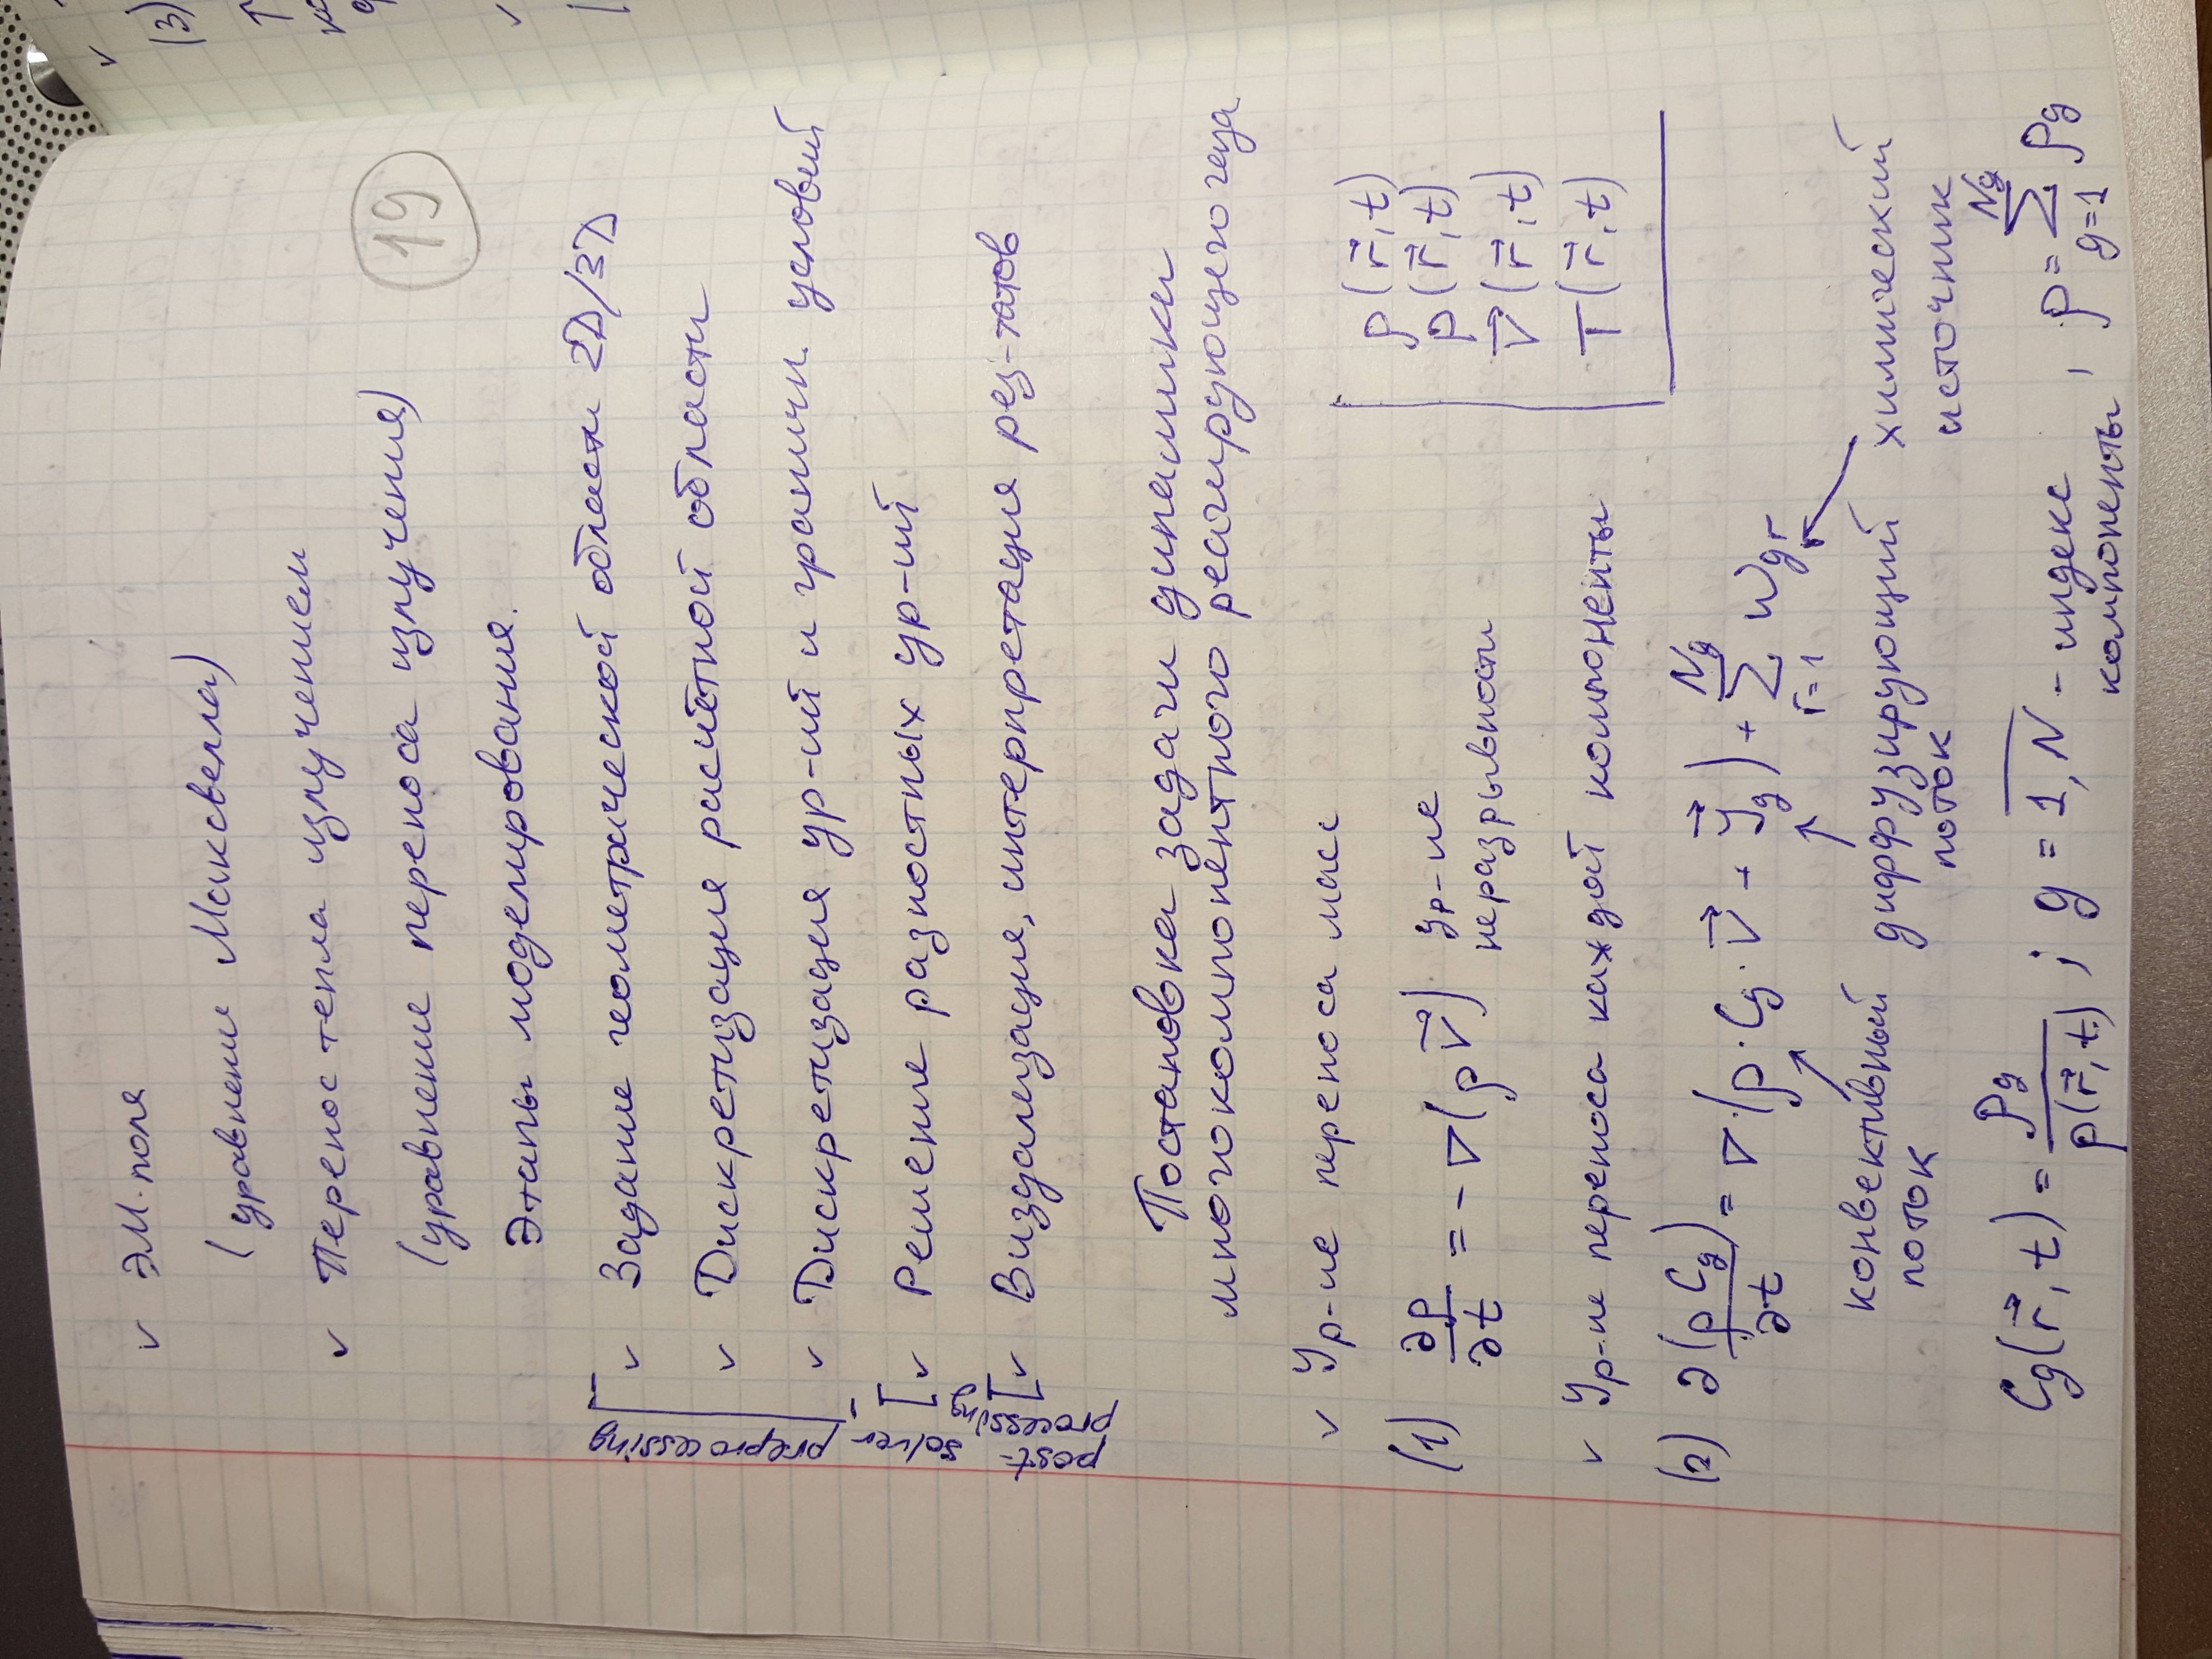 ✓ ЭМ. поля
(уравнение Максвелла)
✓ Перенос тепла излучением
(уравнение переноса излучения)
19
Этапы моделирования.
preprocessing
✓ Задание геометрической области 2D/3D
✓ Дискретизация расчётной области
✓ Дискретизация ур-ий и граничн. условий
solver
✓ Решение разностных ур-ий
post-
processing
✓ Визуализация, интерпретация рез-татов
Постановка задачи динамики
многокомпонентного реагирующего газа
✓ Ур-ие переноса масс
(1) ∂ρ/∂t = -∇(ρV⃗) Ур-ие
неразрывности
ρ(r⃗,t)
p(r⃗,t)
V⃗(r⃗,t)
T(r⃗,t)
✓ Ур-ие переноса каждой компоненты
(2) ∂(ρ Cg)/∂t = ∇·(ρ·Cg·V⃗ + J⃗g) + Σ_{r=1}^{Ng} Wgr
конвективный диффузирующий химический
поток поток источник
Cg(r⃗,t) = ρg/ρ(r⃗,t) ; g = 1,N - индекс
компоненты , ρ = Σ_{g=1}^{Ng} ρg
(3)